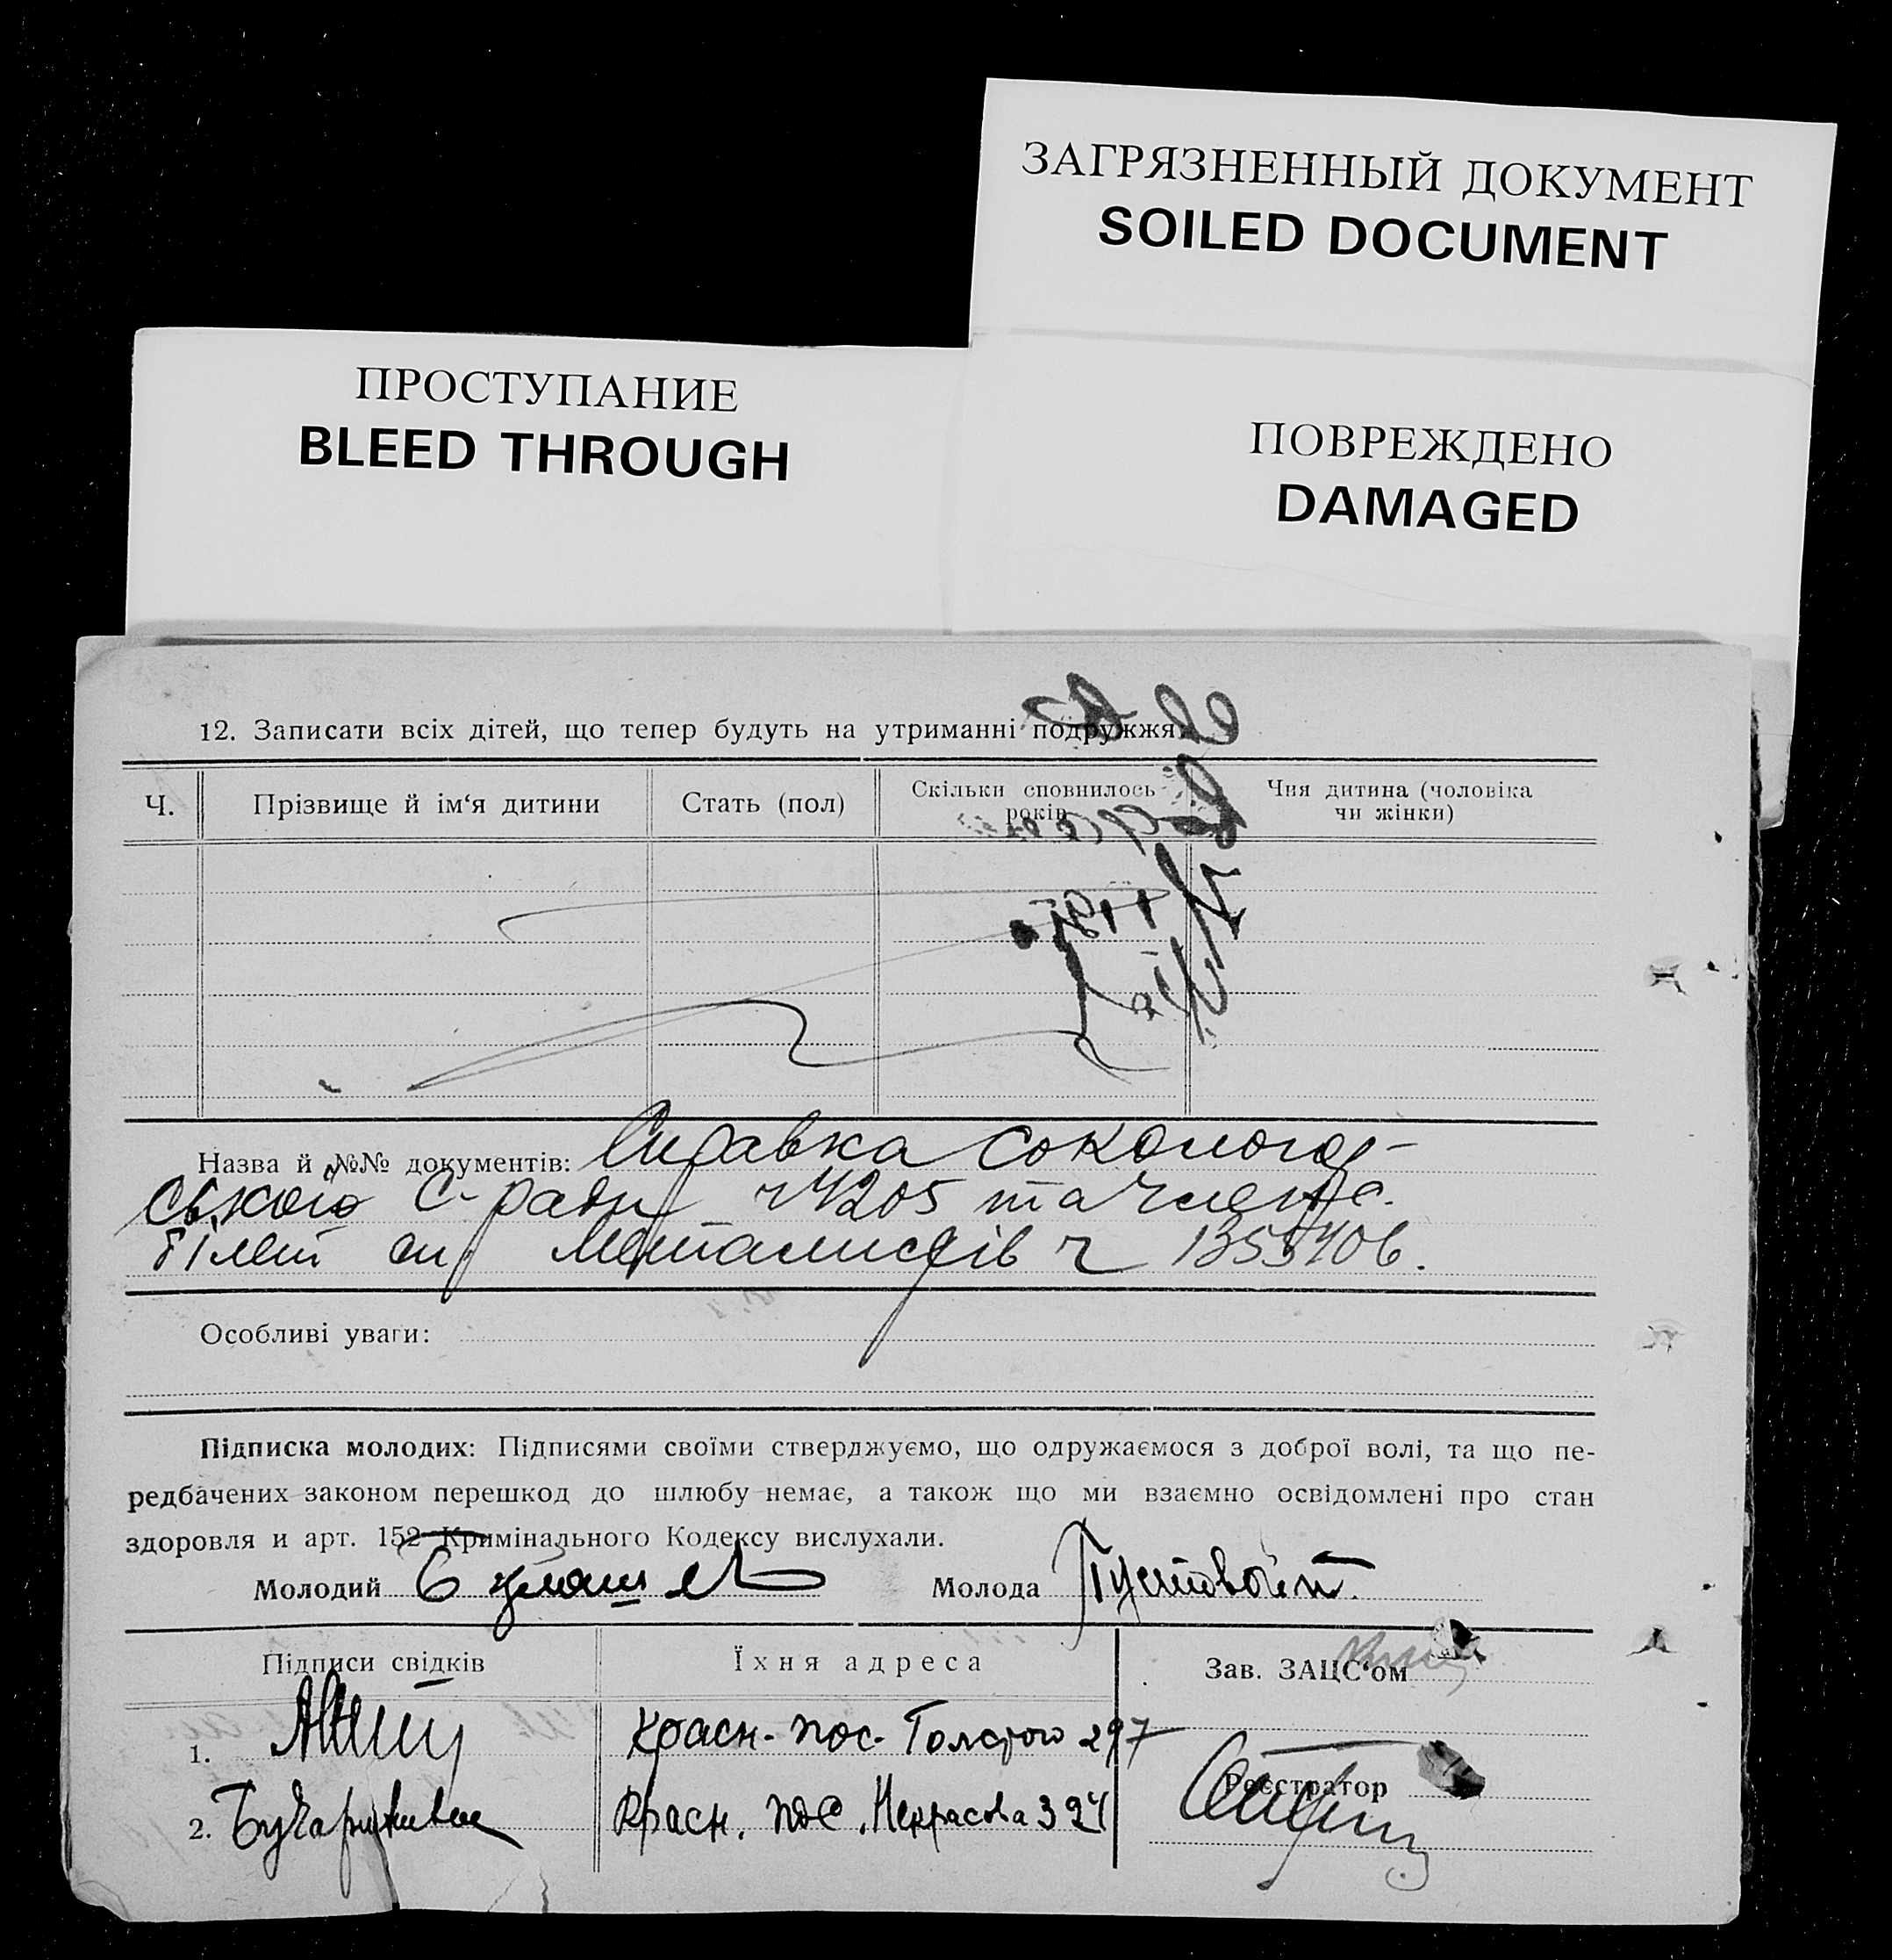 ЗАГРЯЗНЕННЫЙ ДОКУМЕНТ
SOILED DOCUMENT
ПРОСТУПАНИЕ
BLEED THROUGH
ПОВРЕЖДЕНО
DAMAGED
12. Записати всіх дітей, що тепер будуть на утриманні подружжя:
Ч.
Прізвище й ім‘я дитини
Стать (пол)
Скільки сповнилось
років
Чия дитина (чоловіка
чи жінки)
Назва й №№ документів: Справка Сокологор-
ського С-ради ч 4205 та членс.
білет сп. Металистів ч 1355406.
Особливі уваги:
Підписка молодих: Підписями своїми стверджуємо, що одружаємося з доброї волі, та що пе-
редбачених законом перешкод до шлюбу немає, а також що ми взаємно освідомлені про стан
здоровля и арт. 152 Кримінального Кодексу вислухали.
Молодий
Молода Пустовойт.
Підписи свідків
Їхня адреса
Зав. ЗАЦС‘ом
1.
Красн. пос. Толстого 297
Реєстратор
2.
Красн. пос. Некрасова 324